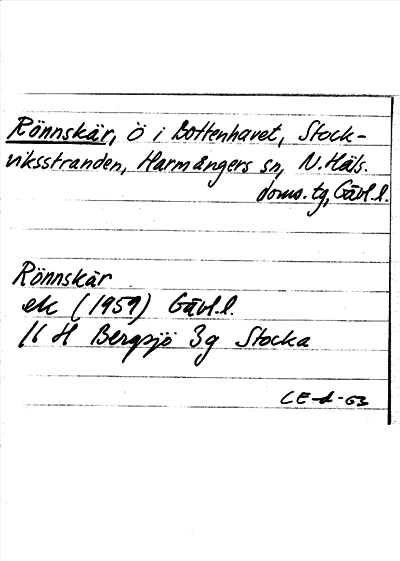 Rönnskär, Ö i Bottenhavet, Stock-
viksstranden, Harmångers sn, N. Häls.
doms. tg, Gävl. l.
Rönnskär
ek (1959) Gävl. l.
16 H Bergsjö 3g Stocka
CE-d-63